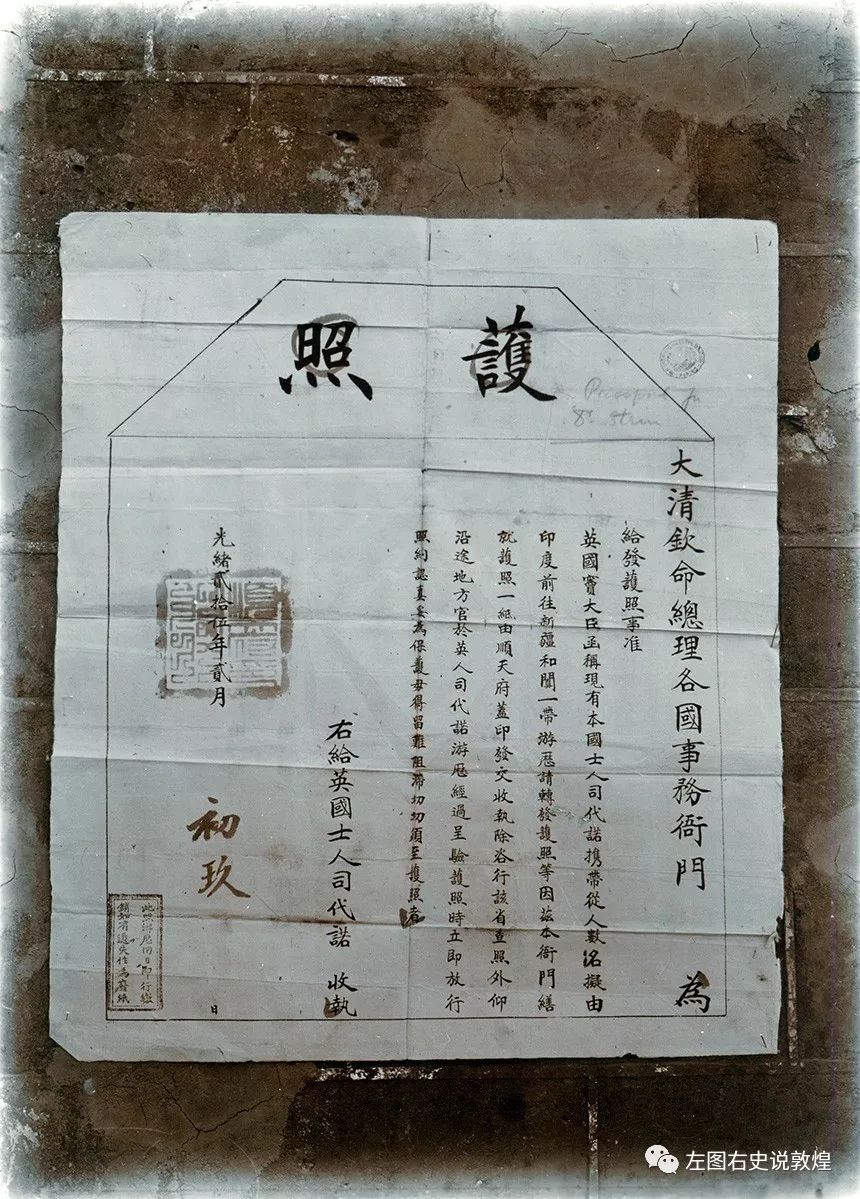 護照
大清欽命總理各國事務衙門 為
給發護照事准
英國竇大臣函稱現有本國士人司代諾攜帶從人數名擬由
印度前往新疆和闐一帶游歷請轉發護照等因茲本衙門繕
就護照一紙由順天府蓋印發交收執除咨行該省查照外仰
沿途地方官於英人司代諾游歷經過呈驗護照時立即放行
照約認真妥為保護毋得留難阻滯切切須至護照者
右給英國士人司代諾 收執
光緒貳拾伍年貳月 初玖 日
此照游歷回日即行繳
銷如有遺失作為廢紙
Passport for
Dr. Stein
左图右史说敦煌